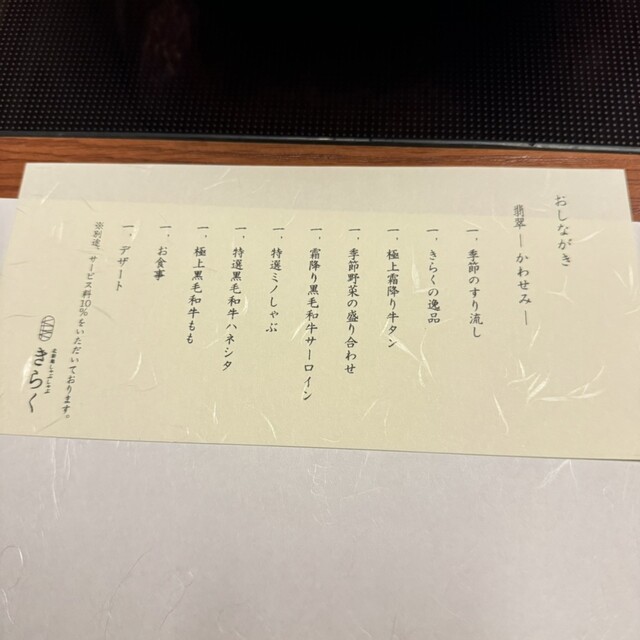 おしながき
翡翠 ― かわせみ ―
一、季節のすり流し
一、きらくの逸品
一、極上霜降り牛タン
一、季節野菜の盛り合わせ
一、霜降り黒毛和牛サーロイン
一、特選ミノしゃぶ
一、特選黒毛和牛ハネシタ
一、極上黒毛和牛もも
一、お食事
一、デザート
※別途、サービス料10%をいただいております。
きらく